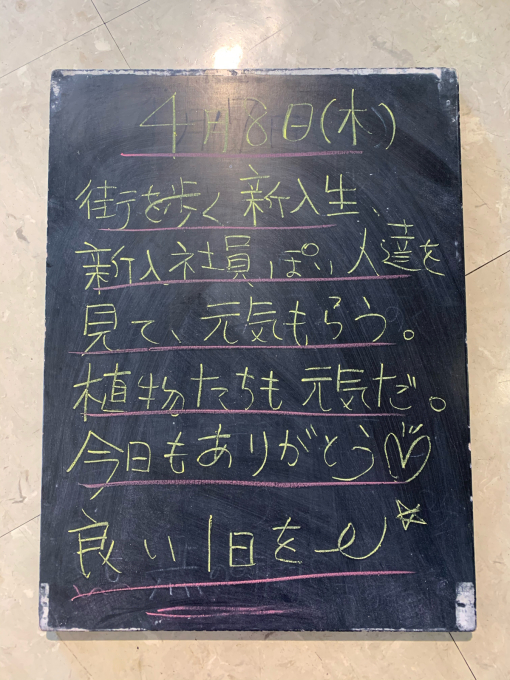 4月8日(木)
街を歩く新入生、
新入社員ぽい人達を
見て、元気もらう。
植物たちも元気だ。
今日もありがとう♡
良い1日を〜☆